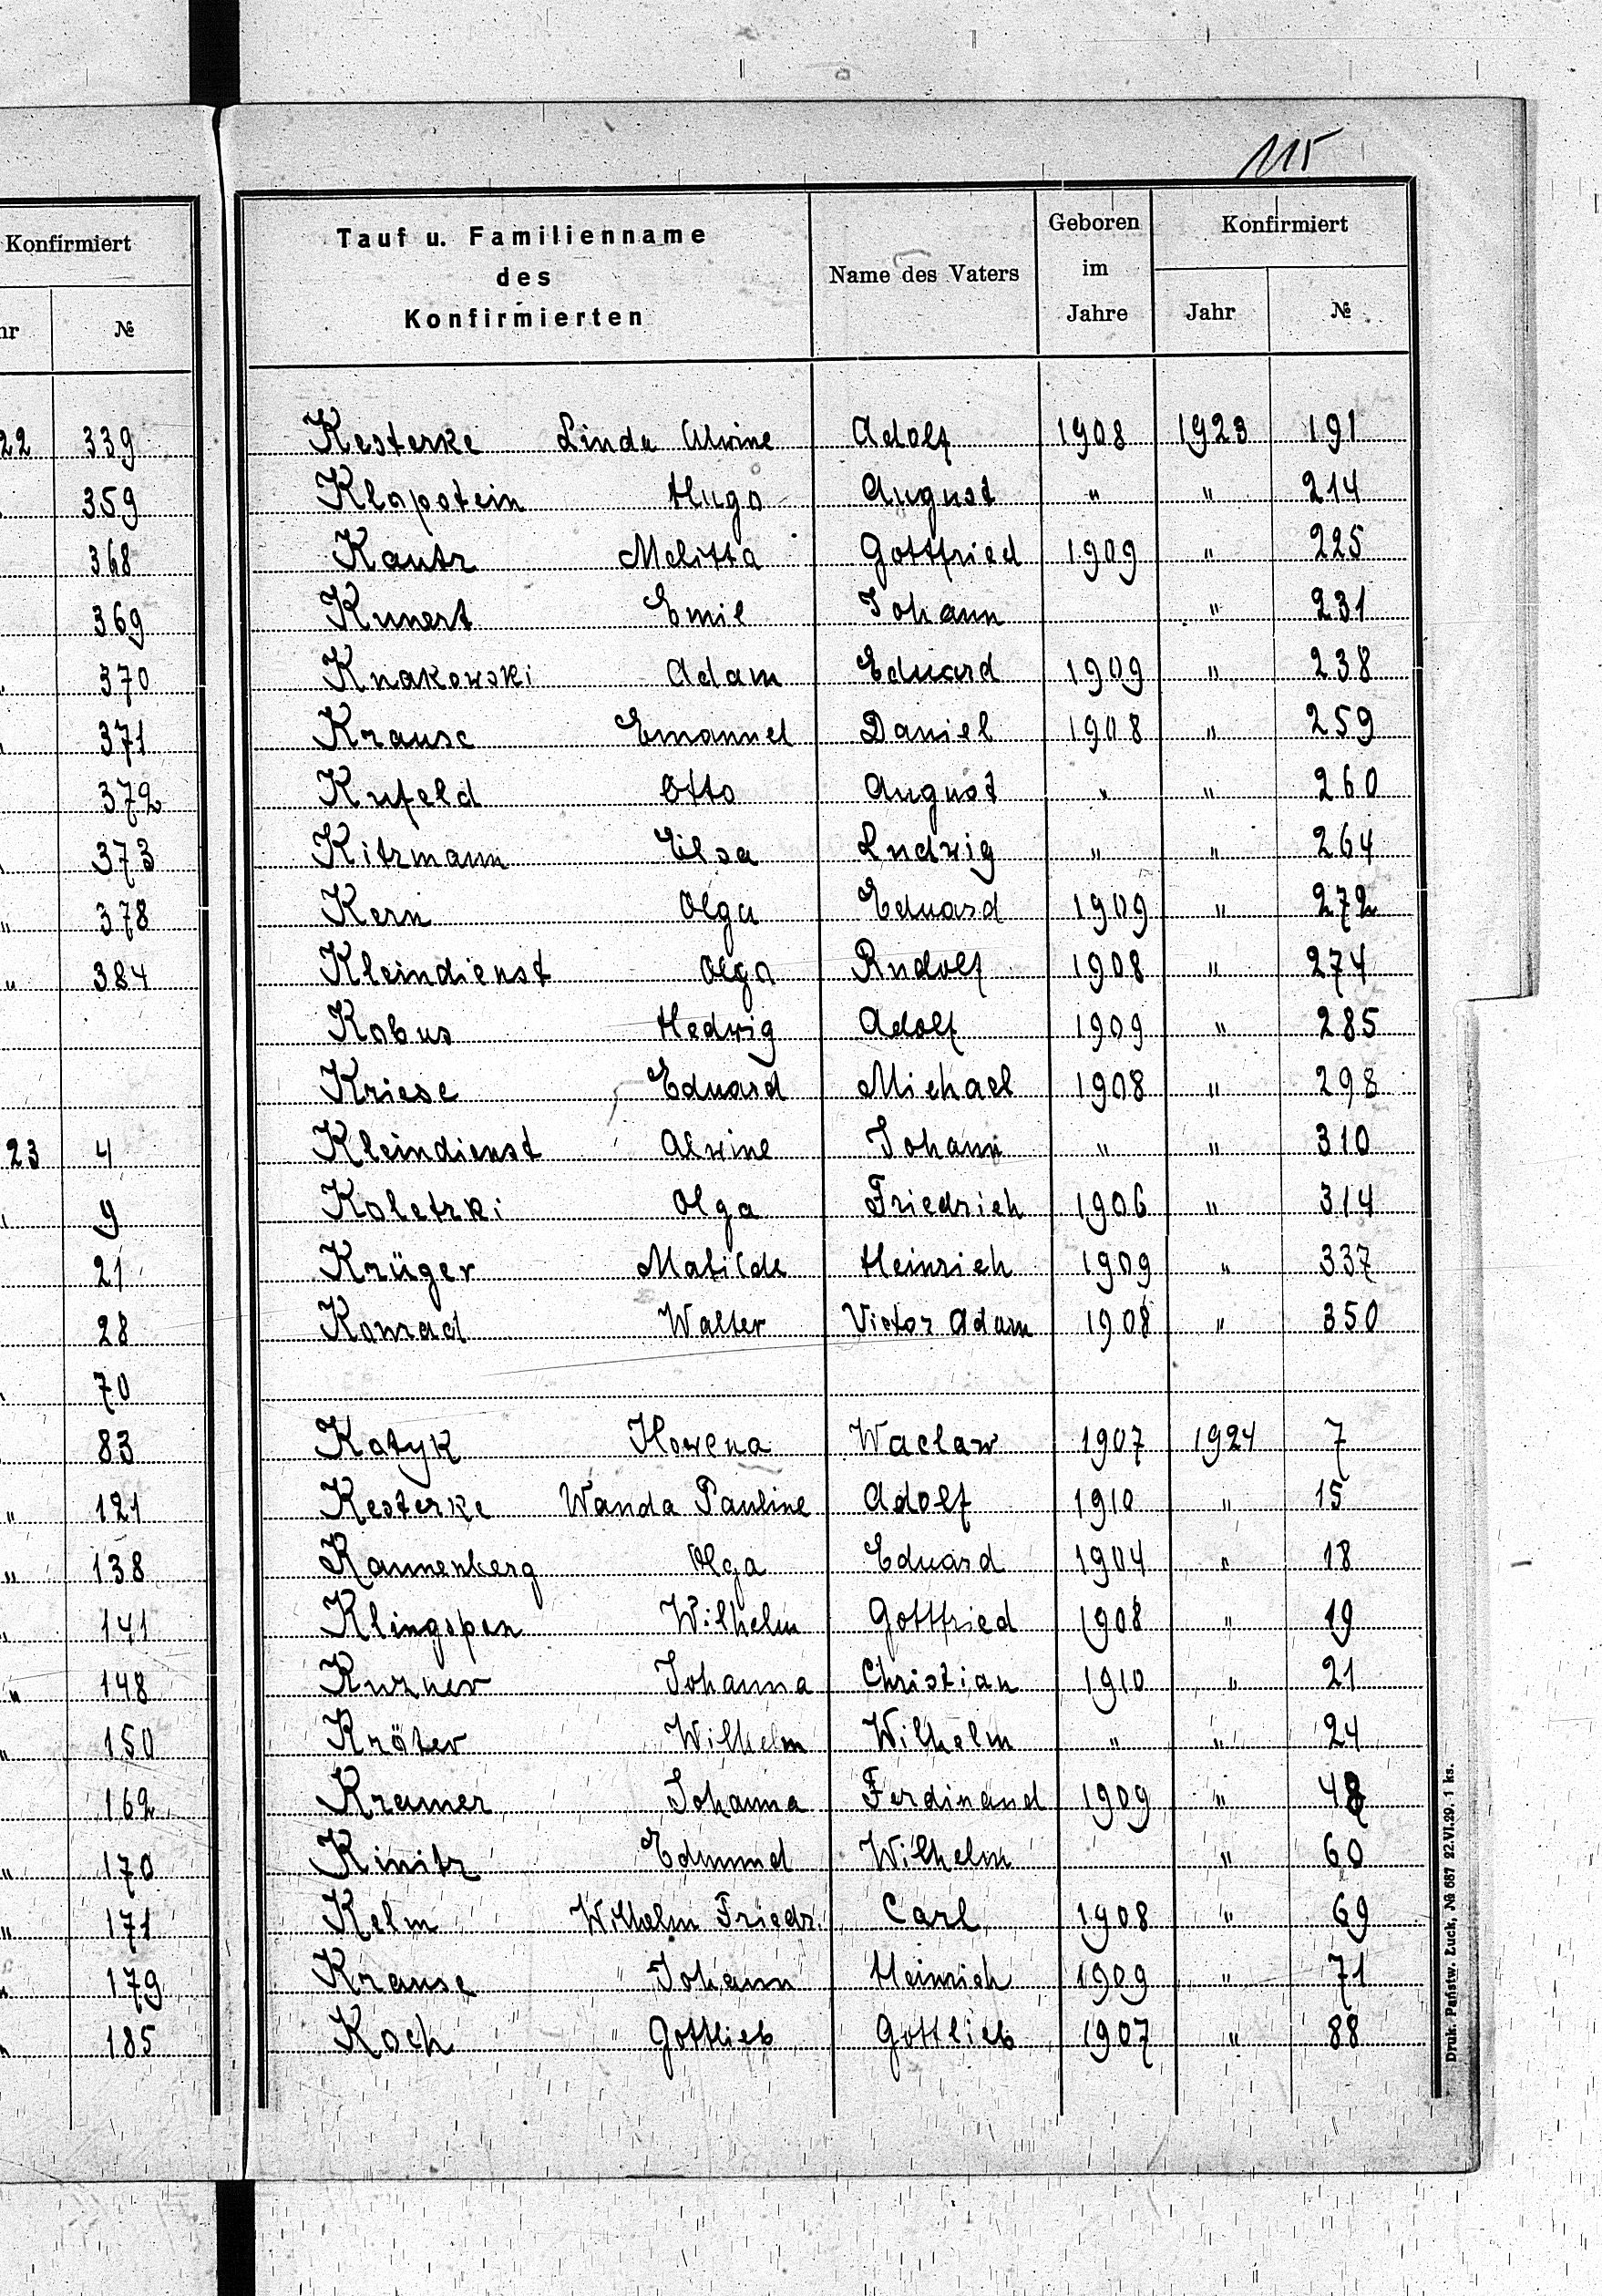 115
Konfirmiert
hr №
22 339
359
368
369
370
371
372
373
" 378
" 384
23 4
9
21
28
70
83
" 121
" 138
" 141
" 148
" 150
162
" 170
" 171
" 179
" 185
Tauf u. Familienname des Konfirmierten | Name des Vaters | Geboren im Jahre | Konfirmiert Jahr | №
Kesterke Linda Alwine Adolf 1908 1923 191
Klopstein Hugo August " " 214
Kautz Melitta Gottfried 1909 " 225
Kunert Emil Johann " 231
Knakowski Adam Eduard 1909 " 238
Krause Emanuel Daniel 1908 " 259
Kufeld Otto August " " 260
Kitzmann Elsa Ludwig " " 264
Kern Olga Eduard 1909 " 272
Kleindienst Olga Rudolf 1908 " 274
Kobus Hedwig Adolf 1909 " 285
Kriese Eduard Michael 1908 " 298
Kleindienst Alwine Johann " " 310
Koletzki Olga Friedrich 1906 " 314
Krüger Matilde Heinrich 1909 " 337
Konrad Walter Victor Adam 1908 " 350
Kotyk Howena Waclaw 1907 1924 7
Kesterke Wanda Pauline Adolf 1910 " 15
Kannenberg Olga Eduard 1904 " 18
Klingspen Wilhelm Gottfried 1908 " 19
Kuzner Johanna Christian 1910 " 21
Kröter Wilhelm Wilhelm " " 24
Kramer Johanna Ferdinand 1909 "
Kinitz Edmund Wilhelm " 60
Kelm Wilhelm Friedr. Carl 1908 " 69
Krause Johann Heinrich 1909 " 71
Koch Gottlieb Gottlieb 1907 " 88
Druk. Państw. Łuck, № 687 22.VI.29. 1 ks.